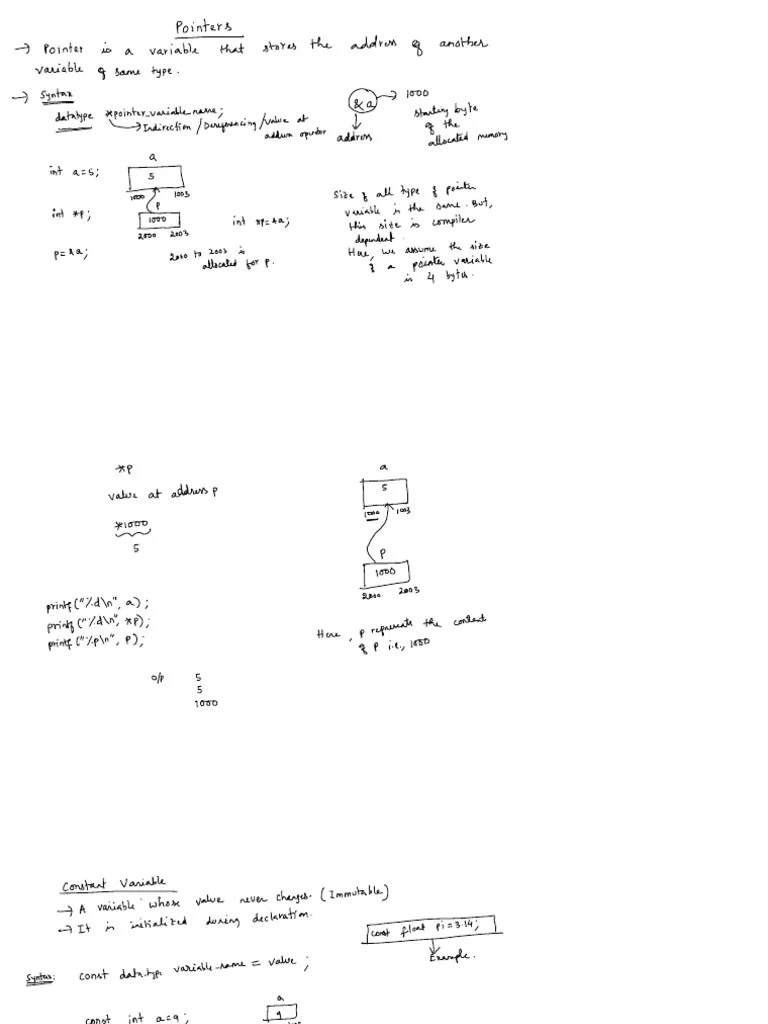 Pointers
→ Pointer is a variable that stores the address of another
variable of same type.
→ Syntax
datatype *pointer_variable_name;
→ Indirection / Dereferencing / Value at
address operator
&a → 1000
address
starting byte
of the
allocated memory
int a=5;
a
5
1000 1003
int *p;
P
1000
2000 2003
p=&a;
int *p=&a;
2000 to 2003 is
allocated for p.
Size of all type of pointer
variable is the same. But,
this size is compiler
dependent.
Here, we assume the size
of a pointer variable
is 4 bytes.
*p
value at address p
*1000
5
a
5
1000 1003
P
1000
2000 2003
printf("%d\n", a);
printf("%d\n", *p);
printf("%p\n", p);
Here, p represents the content
of P i.e., 1000
O/P 5
5
1000
Constant Variable
→ A variable whose value never changes. (Immutable)
→ It is initialized during declaration.
const float pi=3.14;
Example.
Syntax: const data-type variable-name = value;
const int a=9;
a
9